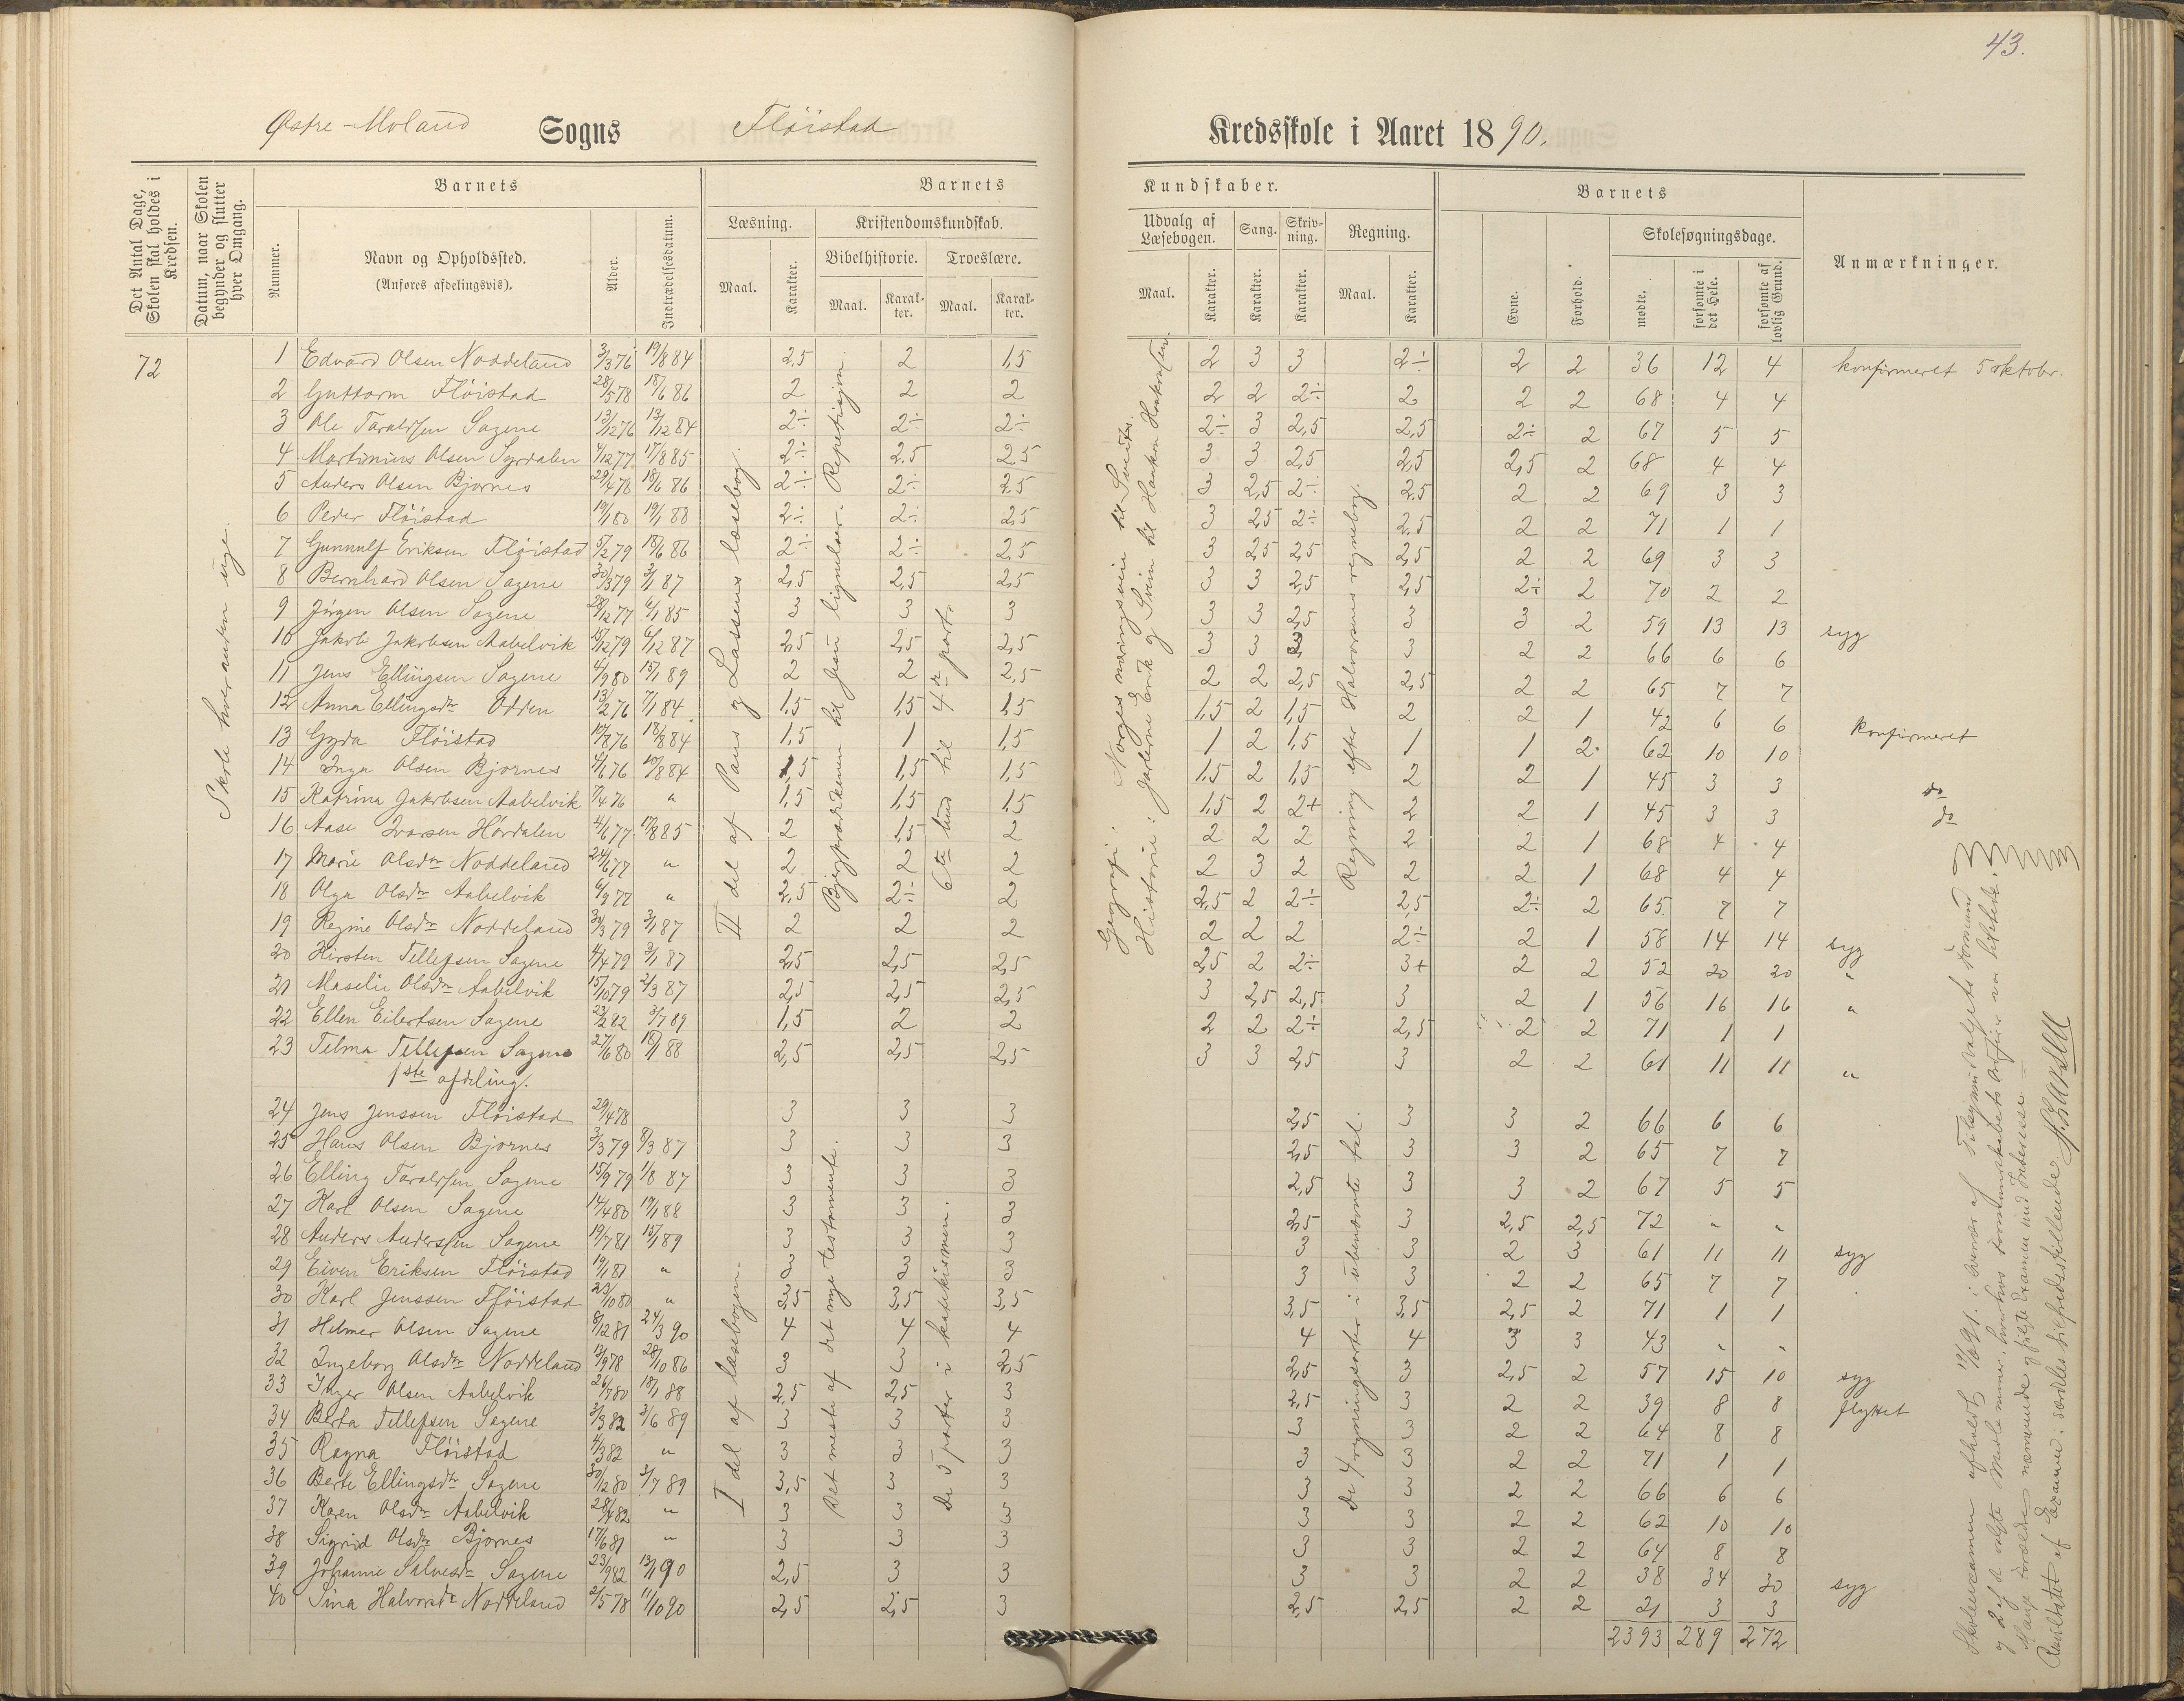 43.
Østre-Moland Sogns Flöistad Kredsskole i Aaret 1890.
Det Antal Dage, Skolen skal holdes i Kredsen.
Datum, naar Skolen begynder og slutter hver Omgang.
Barnets
Nummer.
Navn og Opholdssted.
(Anføres afdelingsvis).
Alder.
Indtrædelsesdatum.
Barnets Kundskaber.
Læsning.
Maal.
Karakter.
Kristendomskundskab.
Bibelhistorie.
Maal.
Karakter.
Troeslære.
Maal.
Karakter.
Udvalg af Læsebogen.
Maal.
Karakter.
Sang.
Karakter.
Skrivning.
Karakter.
Regning.
Maal.
Karakter.
Barnets
Evne.
Forhold.
Skolesøgningsdage.
mødte.
forsømte i det Hele.
forsømte af lovlig Grund.
Anmærkninger.
72
Skole hveranden uge.
II del af Paus og Lassens læsebog.
Bjergprædikenen til Jesu lignelser. Repetisjon.
6te bud til 4de part.
Geografi: Norges næringsveie til Sveits.
Historie: Jarlerne Erik og Svein til Haakon Haakonsen.
Regning efter Halvorsens regnebog.
1 Edvard Olsen Noddeland 3/3 76 19/8 84 2,5 2 1,5 2 3 3 2÷ 2 2 36 12 4 konfirmeret 5 oktobr.
2 Guttorm Flöistad 28/5 78 18/6 86 2 2 2 2 2 2÷ 2 2 2 68 4 4
3 Ole Taraldsen Sagene 13/12 76 13/12 84 2÷ 2÷ 2÷ 2÷ 3 2,5 2,5 2÷ 2 67 5 5
4 Martinius Olsen Syrdalen 4/12 77 17/8 85 2÷ 2,5 2,5 3 3 2,5 2,5 2,5 2 68 4 4
5 Anders Olsen Bjornes 29/4 78 18/6 86 2÷ 2÷ 2,5 3 2,5 2÷ 2,5 2 2 69 3 3
6 Peder Flöistad 19/1 80 19/1 88 2÷ 2÷ 2,5 3 2,5 2÷ 2,5 2 2 71 1 1
7 Gunnulf Eriksen Flöistad 5/2 79 18/6 86 2÷ 2÷ 2,5 3 2,5 2,5 2,5 2 2 69 3 3
8 Bernhard Olsen Sagene 30/3 79 3/1 87 2,5 2,5 2,5 3 3 2,5 2,5 2÷ 2 70 2 2
9 Jörgen Olsen Sagene 28/12 77 6/1 85 3 3 3 3 3 2,5 3 3 2 59 13 13 syg
10 Jakob Jakobsen Aabelvik 15/12 79 6/12 87 2,5 2,5 2,5 3 3 3 3 2 2 66 6 6
11 Jens Ellingsen Sagene 4/9 80 15/1 89 2 2 2,5 2 2 2,5 2,5 2 2 65 7 7
12 Anna Ellingsdtr Odden 13/2 76 7/1 84 1,5 1,5 1,5 1,5 2 1,5 2 2 1 42 6 6 Konfirmeret
13 Gyda Flöistad 10/8 76 18/8 84 1,5 1 1,5 1 2 1,5 1 1 2 62 10 10
14 Inga Olsen Bjornes 4/6 76 20/8 84 1,5 1,5 1,5 1,5 2 1,5 2 2 1 45 3 3 do
15 Katrina Jakobsen Aabelvik 7/4 76 " 1,5 1,5 1,5 1,5 2 2+ 2 2 1 45 3 3 do
16 Aase Ivarsen Hördalen 4/6 77 17/8 85 2 1,5 2 2 2 2 2 2 1 68 4 4
17 Marie Olsdtr Noddeland 24/6 77 " 2 2 2 2 3 2 2 2 1 68 4 4
18 Olga Olsdtr Aabelvik 6/9 77 " 2,5 2÷ 2 2,5 2 2÷ 2,5 2÷ 2 65 7 7
19 Regine Olsdtr Noddeland 30/3 79 3/1 87 2 2 2 2 2 2 2÷ 2 1 58 14 14 syg
20 Kirsten Tellefsen Sagene 4/4 79 3/1 87 2,5 2,5 2,5 2,5 2 2÷ 3+ 2 2 52 20 20 "
21 Maselie Olsdtr Aabelvik 15/10 79 2/3 87 2,5 2,5 2,5 3 2,5 2,5 3 2 1 56 16 16 "
22 Ellen Eilertsen Sagene 23/2 82 3/7 89 1,5 2 2 2 2 2÷ 2,5 2 2 71 1 1
23 Telma Tellefsen Sagene 27/6 80 18/1 88 2,5 2,5 2,5 3 3 2,5 3 2 2 61 11 11 "
1ste afdeling.
I del af læsebogen.
Det meste af det nye testamente.
De 5 parter i katekismen.
De 4 regningsarter i ubenævnte tal.
24 Jens Jenssen Flöistad 29/4 78 3 3 3 2,5 3 3 2 66 6 6
25 Hans Olsen Bjornes 3/3 79 8/3 87 3 3 3 2,5 3 3 2 65 7 7
26 Elling Taraldsen Sagene 15/9 79 1/8 87 3 3 3 2,5 3 3 2 67 5 5
27 Karl Olsen Sagene 14/4 80 19/1 88 3 3 3 2,5 3 2,5 2,5 72 " "
28 Anders Anderssen Sagene 19/7 81 15/1 89 3 3 3 3 3 2 3 61 11 11 syg
29 Eiven Eriksen Flöistad 19/1 81 " 3 3 3 3 3 2 2 65 7 7
30 Karl Jenssen Flöistad 23/10 80 " 3,5 3,5 3,5 3,5 3,5 2,5 2 71 1 1
31 Hilmer Olsen Sagene 8/12 81 24/3 90 4 4 4 4 4 3 3 43 " "
32 Ingeborg Olsdtr Noddeland 13/9 78 28/10 86 3 3 2,5 2,5 3 2,5 2 57 15 10 syg
33 Inger Olsen Aabelvik 26/7 80 18/1 88 2,5 2,5 3 2,5 3 2 2 39 8 8 flyttet
34 Berta Tellefsen Sagene 3/3 82 3/6 89 3 3 3 3 3 2 2 64 8 8
35 Ragna Flöistad 4/3 82 " 3 3 3 3 3 2 2 71 1 1
36 Berte Ellingsdtr Sagene 30/12 80 3/7 89 3,5 3 3 3 3 2 2 66 6 6
37 Karen Olsdtr Aabelvik 28/4 82 " 3 3 3 3 3 2 2 62 10 10
38 Sigrid Olsdtr Bjornes 17/6 81 " 3 3 3 3 3 2 2 64 8 8
39 Johanne Salvesdtr Sagene 23/9 82 13/1 90 2,5 3 3 3 3 2 2 38 34 30 syg
40 Sina Halvorsdtr Noddeland 2/5 78 11/10 90 2,5 2,5 3 2,5 2,5 2 2 21 3 3
2393 289 272
Skoleexamen afholdt 11/6 91. i overvær af Tilsynsudvalgets Formand
og 2 af de valgte Medlemmer, hvorhos Formandskabets Ordfører var tilstede.
Mange Forældre nærværende og fulgte Examen med Interesse. =
Resultatet af Examen: særdeles tilfredsstillende.